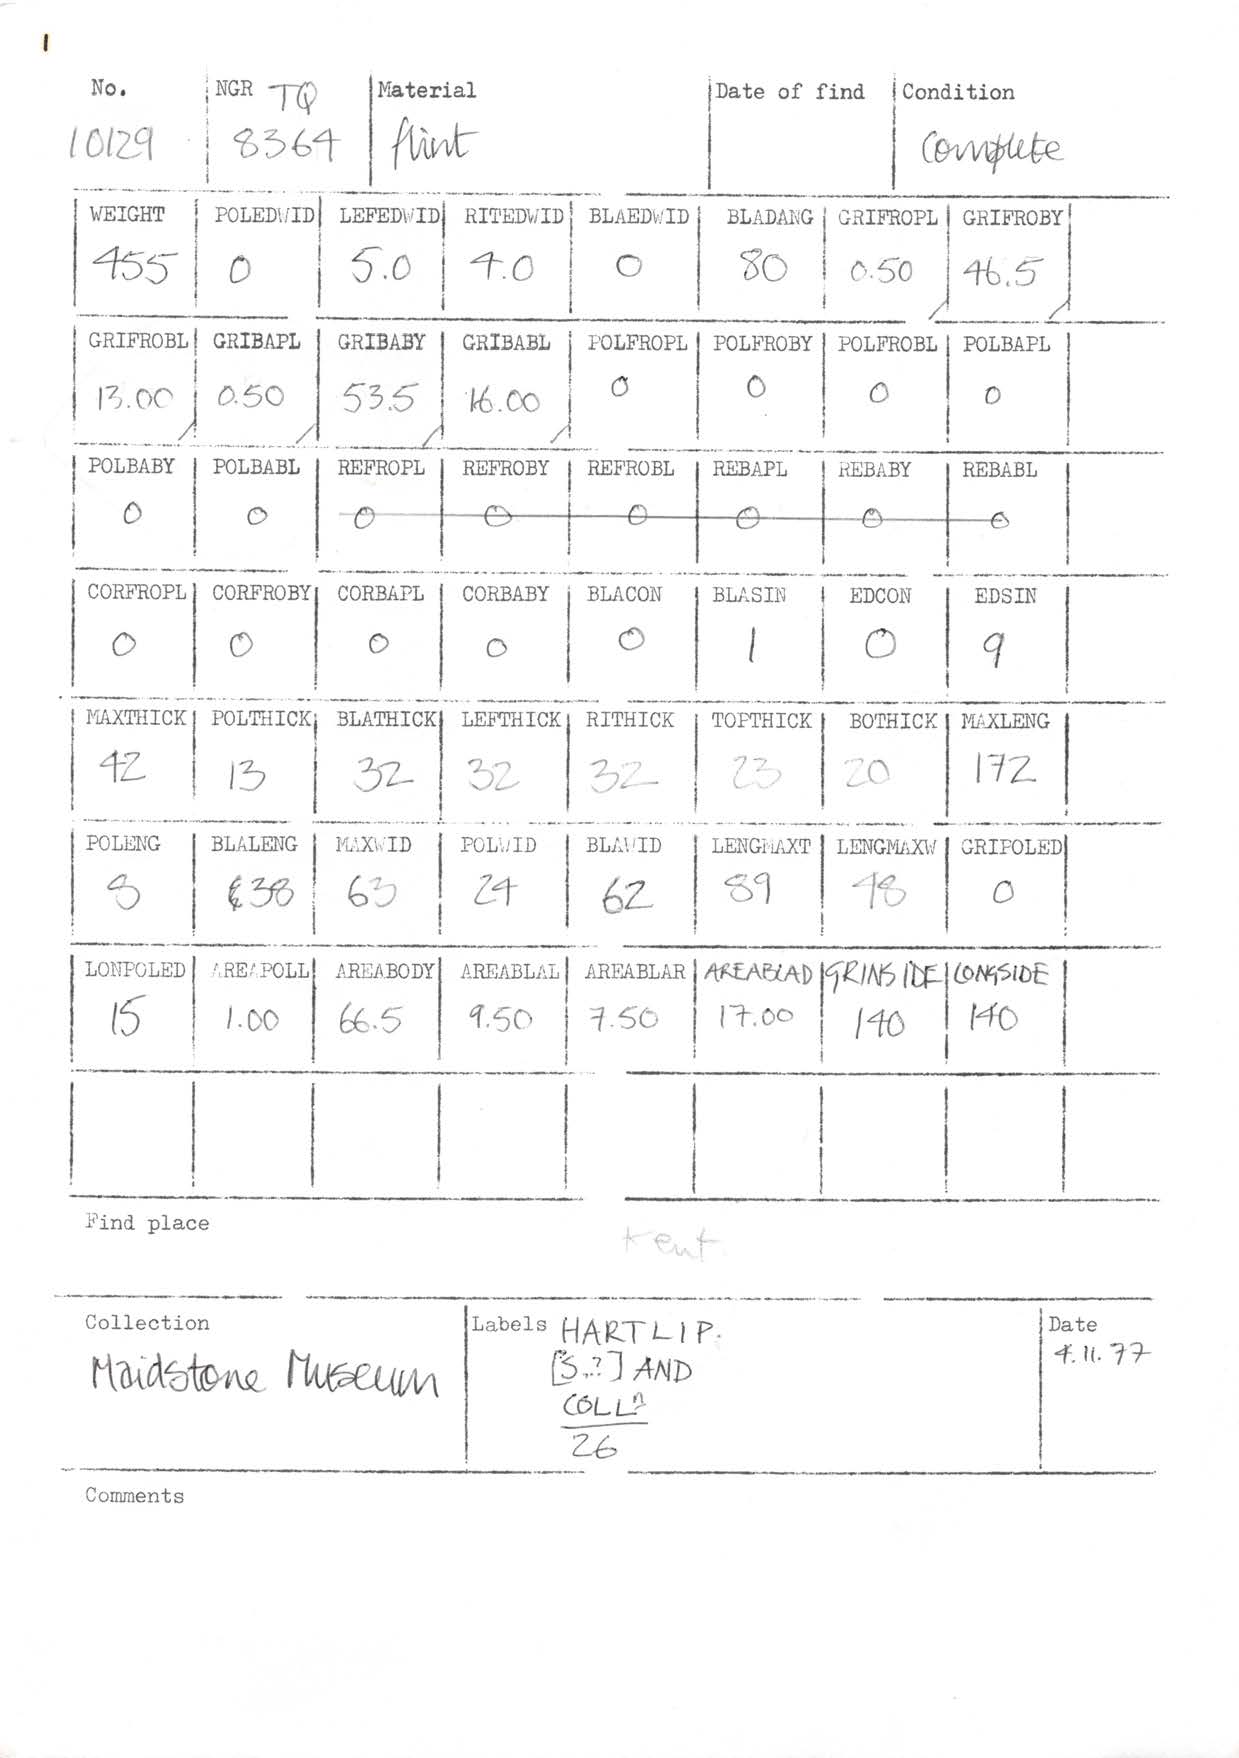 1
No. NGR TQ Material Date of find Condition
10129 8364 flint complete
WEIGHT POLEDWID LEFEDWID RITEDWID BLAEDWID BLADANG GRIFROPL GRIFROBY
455 0 5.0 4.0 0 80 0.50 46.5
GRIFROBL GRIBAPL GRIBABY GRIBABL POLFROPL POLFROBY POLFROBL POLBAPL
13.00 0.50 53.5 16.00 0 0 0 0
POLBABY POLBABL REFROPL REFROBY REFROBL REBAPL REBABY REBABL
0 0 0 0 0 0 0 0
CORFROPL CORFROBY CORBAPL CORBABY BLACON BLASIN EDCON EDSIN
0 0 0 0 0 1 0 9
MAXTHICK POLTHICK BLATHICK LEFTHICK RITHICK TOPTHICK BOTHICK MAXLENG
42 13 32 32 32 23 20 172
POLENG BLALENG MAXWID POLWID BLAWID LENGMAXT LENGMAXW GRIPOLED
8 38 63 24 62 89 48 0
LONPOLED AREAPOLL AREABODY AREABLAL AREABLAR AREABLAD GRINSIDE LONGSIDE
15 1.00 66.5 9.50 7.50 17.00 140 140
Find place
Kent
Collection Labels HARTLIP. Date
Maidstone Museum [S..?] AND 4.11.77
COLLN
26
Comments